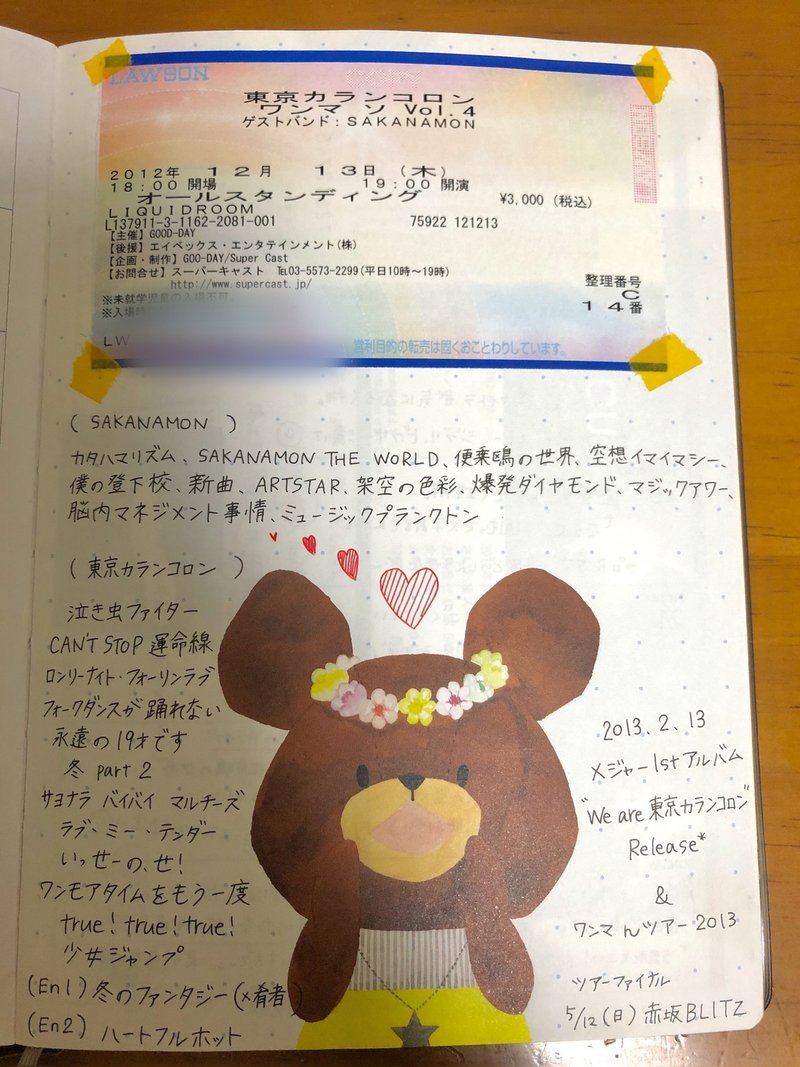 LAWSON
東京カランコロン
ワンマソ Vol.4
ゲストバンド:SAKANAMON
2012年 12月 13日 (木)
18:00 開場 19:00 開演
オールスタンディング ¥3,000 (税込)
LIQUIDROOM
L137911-3-1162-2081-001 75922 121213
【主催】GOOD-DAY
【後援】エイベックス・エンタテインメント(株)
【企画・制作】GOO-DAY/Super Cast
【お問合せ】スーパーキャスト ℡03-5573-2299(平日10時~19時)
http://www.supercast.jp/
整理番号
C
14番
※未就学児童の入場不可。
※入場時
LW
営利目的の転売は固くおことわりしています。
( SAKANAMON )
カタハマリズム、SAKANAMON THE WORLD、便乗鴎の世界、空想イマイマシー、
僕の登下校、新曲、ARTSTAR、架空の色彩、爆発ダイヤモンド、マジックアワー、
脳内マネジメント事情、ミュージックプランクトン
( 東京カランコロン )
泣き虫ファイター
CAN'T STOP 運命線
ロンリーナイト・フォーリンラブ
フォークダンスが踊れない
永遠の19才です
冬 part 2
サヨナラ バイバイ マルチーズ
ラブ・ミー・テンダー
いっせーの、せ!
ワンモアタイムをもう一度
true! true! true!
少女ジャンプ
(En1) 冬のファンタジー (×肴者)
(En2) ハートフルホット
2013.2.13
メジャー1stアルバム
"We are 東京カランコロン"
Release*
&
ワンマんツアー2013
ツアーファイナル
5/12(日) 赤坂BLITZ